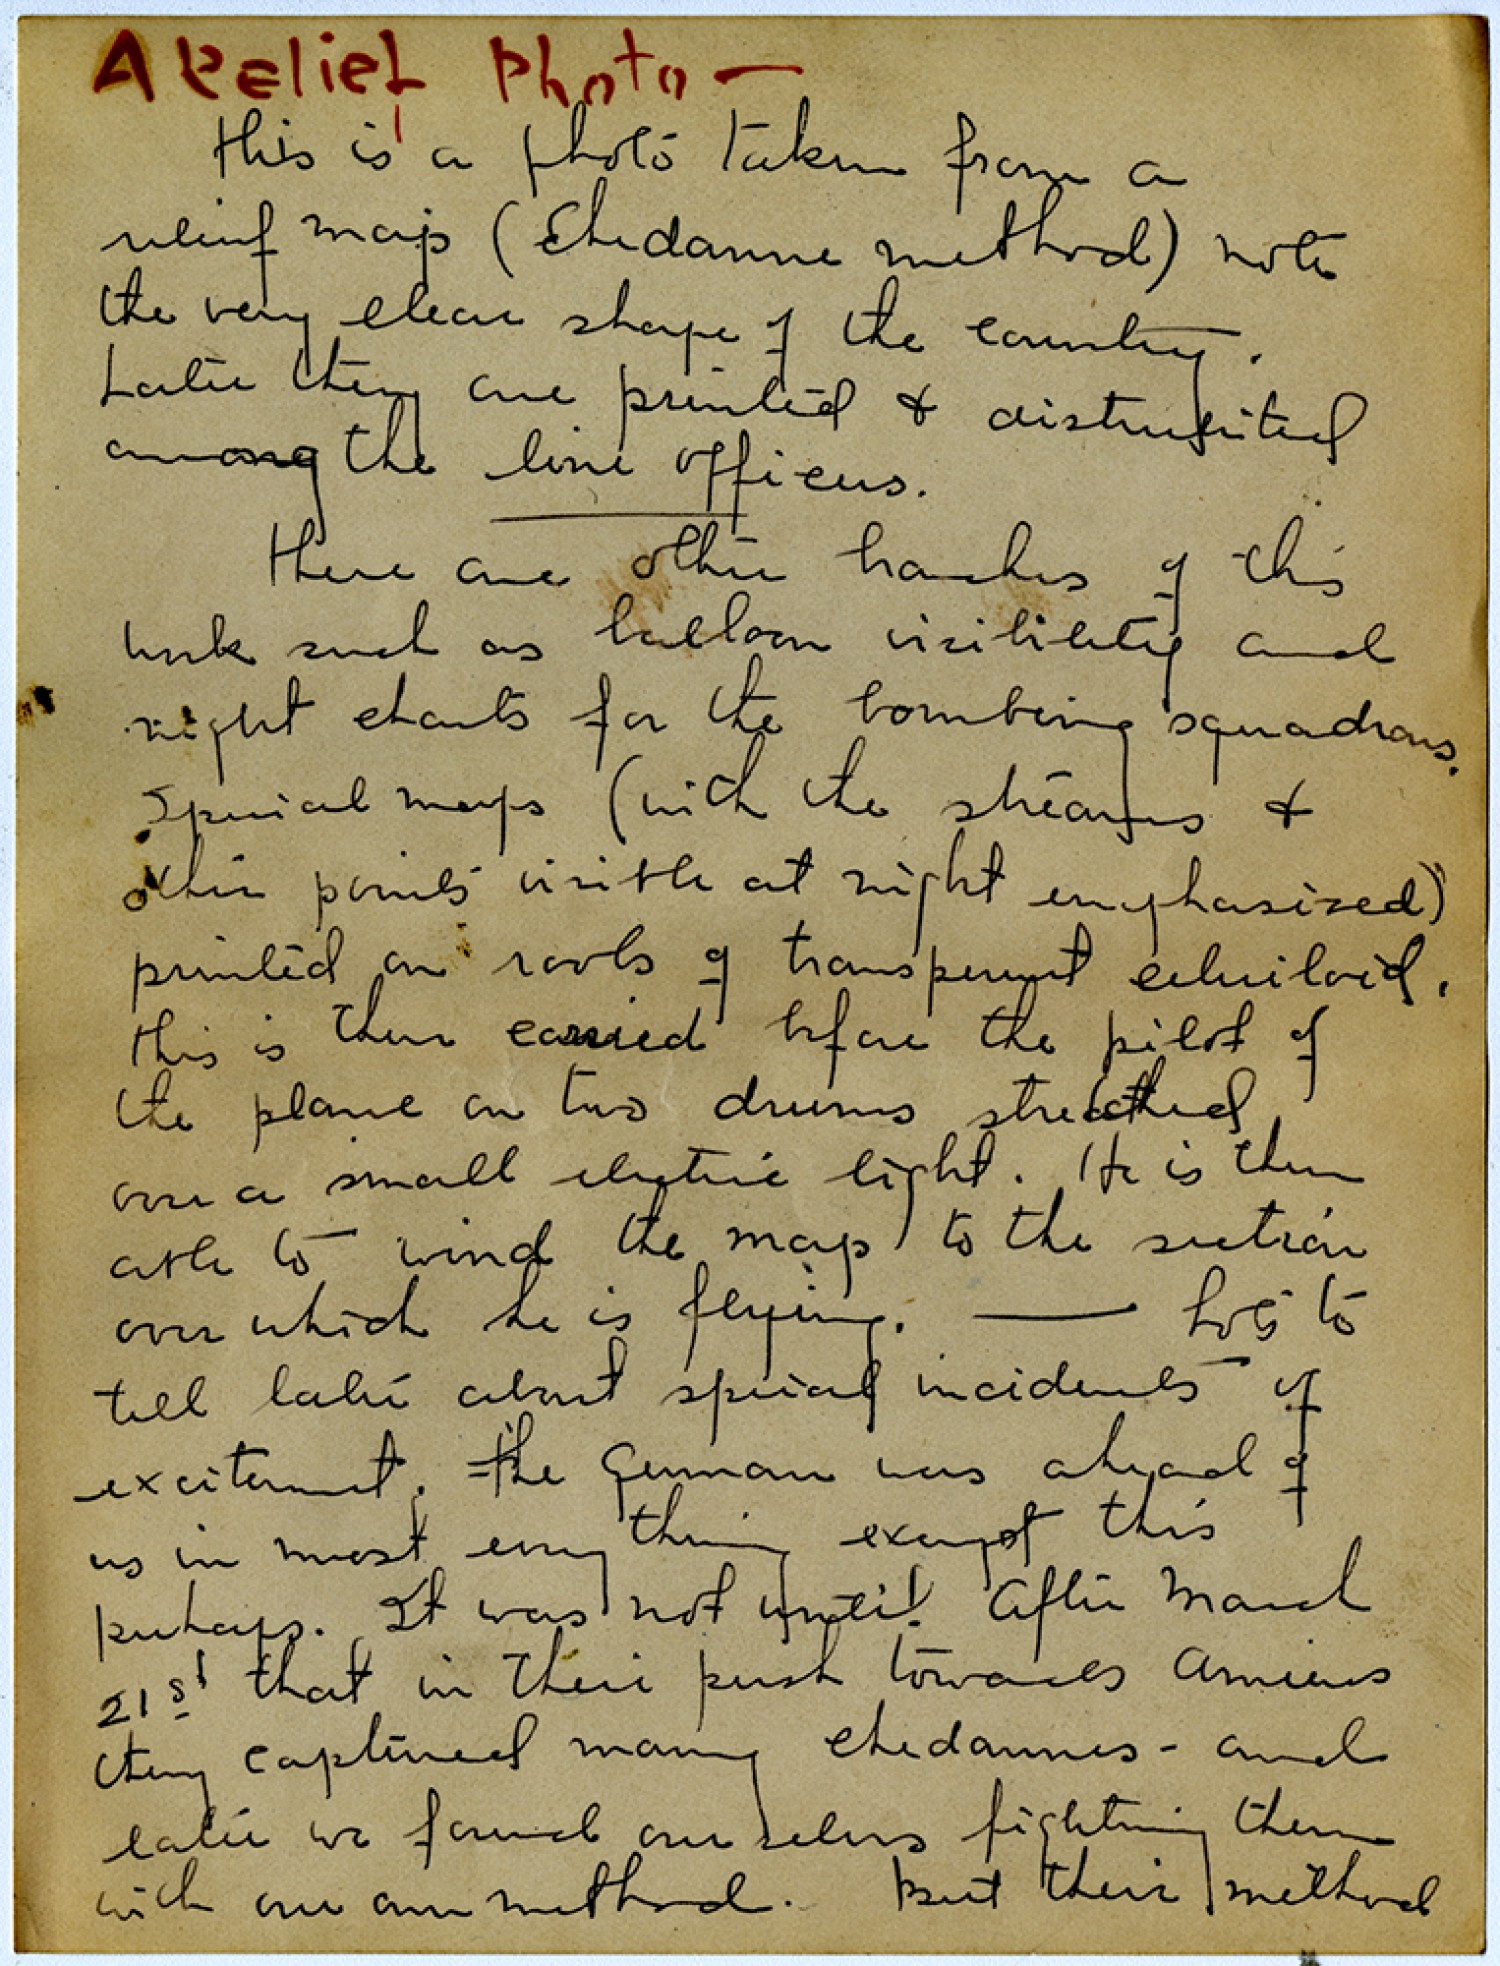 A Relief Photo —
This is a photo taken from a
relief map (Chedanne method) note
the very clear shape of the country.
Later they are printed & distributed
among the line officers.
There are other branches of this
work such as balloon visibility and
night charts for the bombing squadrons.
Special maps (with the streams &
other points visible at night emphasized)
printed on rools of transperent celuiloid.
This is then carried before the pilot of
the plane on two drums stretched
over a small electric light. He is then
able to wind the map to the section
over which he is flying. — Lots to
tell later about special incidents of
excitement. The German was ahead of
us in most every thing except this
perhaps. It was not until after March
21st that in their push towards Amiens
they captured many chedannes - and
later we found ourselves fighting them
with our own method. But their method